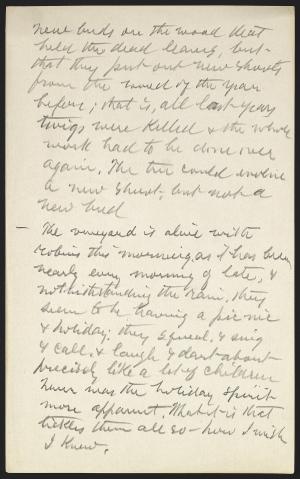 new buds on the wood that
held the dead leaves, but
that they put out new shoots
from the wood of the year
before; that is, all last years
twigs were killed & the whole
work had to be done over
again. The tree could evolve
a new shoot, but not a
new bud
— The vineyard is alive with
robins this morning, as it has been
nearly every morning of late, &
notwithstanding the rain, they
seem to be having a picnic
& holiday; they squeal, & sing
& call, & laugh & dart about
precisely like a lot of children
never was the holiday spirit
more apparent. What it is that
tickles them all so — how I wish
I knew.